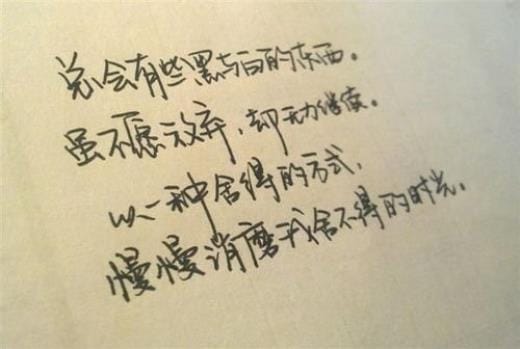 总会有些黑与白的东西。
虽不愿放弃，却无力继续。
以一种舍得的方式，
慢慢消磨我舍不得的时光。